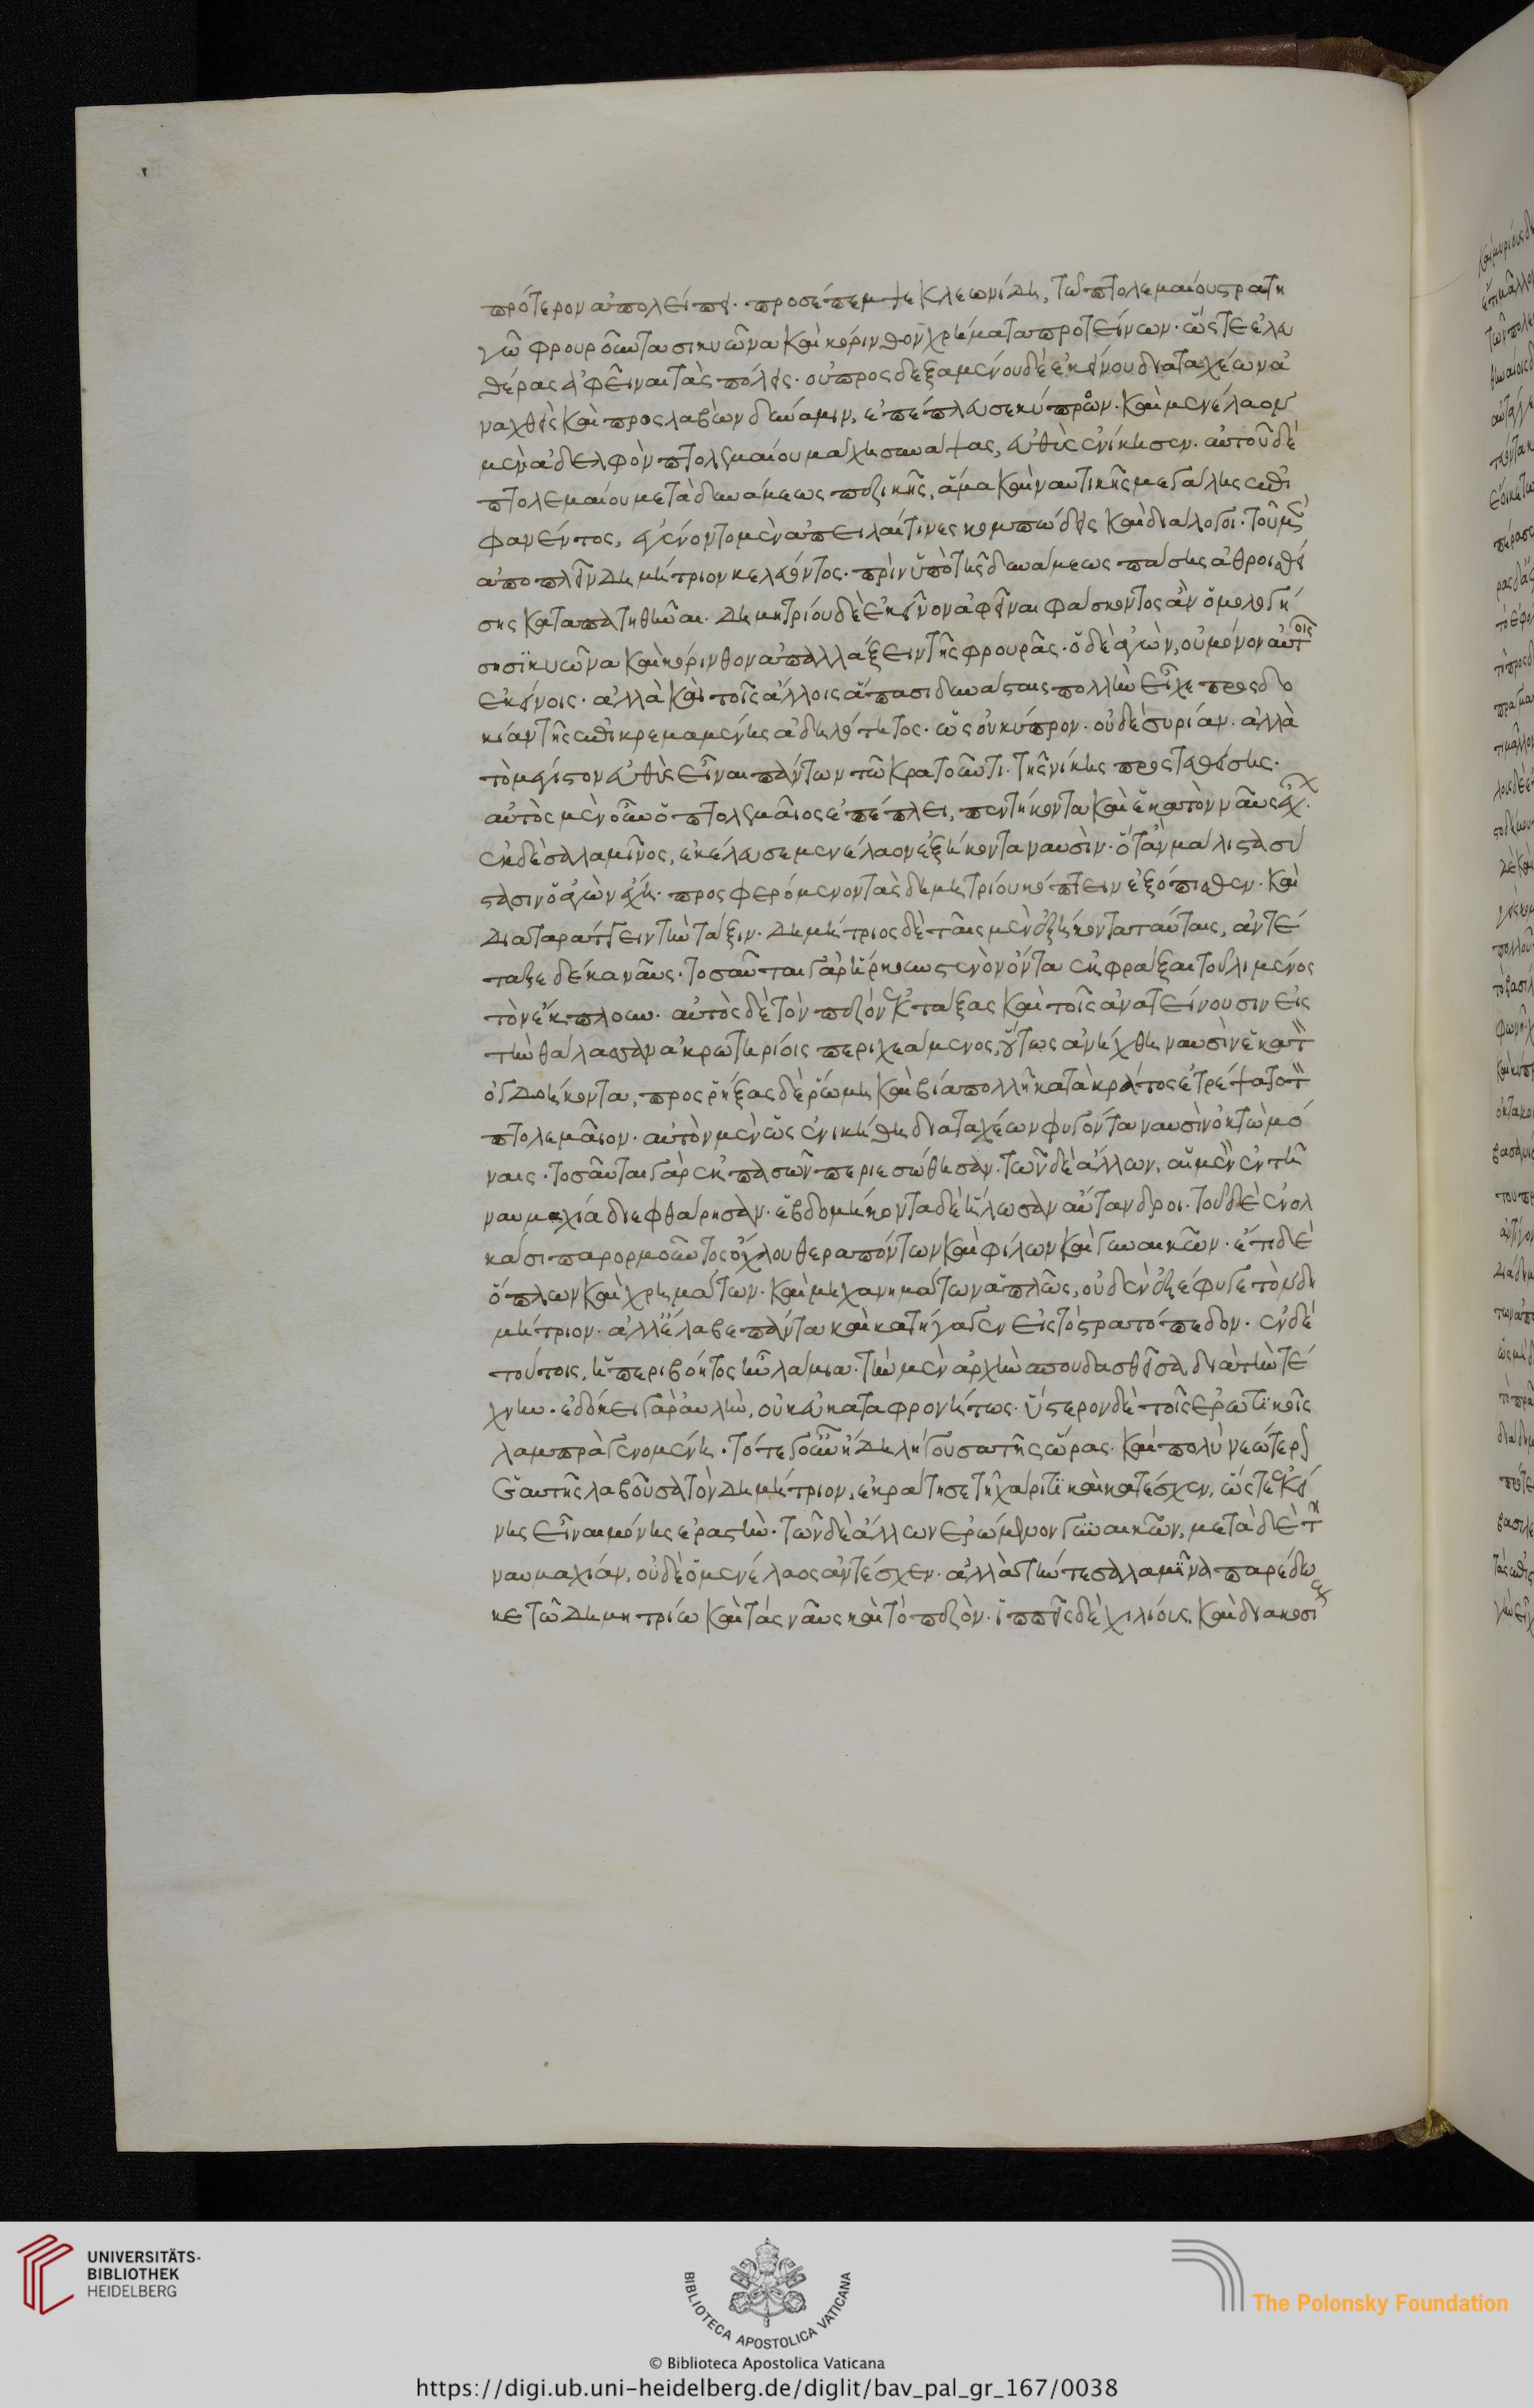 πρότερον ἀπολείπει. προσέπεμψε Κλεωνίδη, τῶ πτολεμαίου στρατη
γῶ φρουροῦντα σικυῶνα καὶ κόρινθον χρήματα προτείνων. ὥστε ἐλευ
θέρας ἀφεῖναι τὰς πόλεις. οὐ προσδεξαμένου δὲ ἐκείνου διαταχέων ἀ
ναχθεὶς καὶ προσλαβὼν δύναμιν, ἐπέπλευσε κύπρων. καὶ μενέλαον
μὲν ἀδελφὸν πτολεμαίου μάχην συνάψας, εὐθὺς ἐνίκησεν. αὐτοῦ δὲ
πτολεμαίου μετὰ δυνάμεως πεζικῆς, ἅμα καὶ ναυτικῆς μεγάλης ἐπι
φανέντος, ἐγένοντο μὲν ἀπειλαί τινες κομπώδεις καὶ διάλογοι. τοῦ μὲν
ἀποπλεῖν δημήτριον κελεύοντος. πρὶν ὑπὸ τῆς δυνάμεως πάσης ἀθροισθεί
σης καταπατηθῆναι. δημητρίου δὲ ἐκεῖνον ἀφεῖναι φάσκοντος ἂν ὁμολογή
ση σϊκυῶνα καὶ κόρινθον ἀπαλλάξειν τῆς φρουρᾶς. ὁ δὲ ἀγὼν, οὐ μόνον αὐτοῖς
ἐκείνοις. ἀλλὰ καὶ τοῖς ἄλλοις ἅπασι δυνάσταις πολλὴν εἶχε προσδο
κίαν τῆς ἐπικρεμαμένης ἀδηλότητος. ὡς οὐ κύπρον. οὐδὲ συρίαν. ἀλλὰ
τὸ μέγιστον εὐθὺς εἶναι πάντων τῶ κρατοῦντι. τῆς νίκης προστιθείσης.
αὐτὸς μὲν οὖν ὁ πτολεμαῖος ἐπέπλει, πεντήκοντα καὶ ἑκατὸν ναῦς ἔχ.
ἐκ δὲ σαλαμῖνος, ἐκέλευσε μενέλαον ἑξήκοντα ναυσὶν. ὅταν μάλιστα συ
στασιν ὁ ἀγὼν ἔχη. προσφερόμενον τὰς δημητρίου κόπτειν ἐξόπισθεν. καὶ
διαταράττειν τὴν τάξιν. δημήτριος δὲ ταῖς μὲν ἑξήκοντα ταύταις, ἀντέ
ταξε δέκα ναῦς. τοσαῦται γὰρ ἤρκουν στενὸν ὄντα ἐμφράξαι τοῦ λιμένος
τὸν ἔκπλουν. αὐτὸς δὲ τὸν πεζὸν ἐκτάξας καὶ τοῖς ἀνατείνουσιν εἰς
τὴν θάλασσαν ἀκρωτηρίοις περιχεάμενος, οὕτως ἀνήχθη ναυσὶν ἑκατὸν
ὀγδοήκοντα, προσρήξας δὲ ῥώμη καὶ βία πολλῆ κατὰ κράτος ἐτρέψατο τὸν
πτολεμαῖον. αὐτὸν μὲν ὡς ἐνικήθη διαταχέων φυγόντα ναυσὶν ὀκτὼ μό
ναις. τοσαῦται γὰρ ἐκ πασῶν περιεσώθησαν. τῶν δὲ ἄλλων, αἱ μὲν ἐν τῆ
ναυμαχία διεφθάρησαν. ἑβδομήκοντα δὲ ἥλωσαν αὔτανδροι. τοῦ δὲ ἐν ὁλ
κάσι παρορμοῦντος ὄχλου θεραπόντων καὶ φίλων καὶ γυναικῶν. ἔτι δὲ
ὅπλων καὶ χρημάτων. καὶ μηχανημάτων ἁπλῶς, οὐδὲν ἐξέφυγε τὸν δη
μήτριον. ἀλλ' ἔλαβε πάντα καὶ κατήγαγεν εἰς τὸ στρατόπεδον. ἐν δὲ
τούτοις, ἡ περιβόητος ἦν λάμια. τὴν μὲν ἀρχὴν σπουδασθεῖσα διὰ τὴν τέ
χνην. ἐδόκει γὰρ αὐλεῖν, οὐκ εὐκαταφρονήτως. ὕστερον δὲ τοῖς ἐρωτϊκοῖς
λαμπρὰ γενομένη. τότε γοῦν ἤδη λήγουσα τῆς ὥρας. καὶ πολὺ νεώτερον
ἑαυτῆς λαβοῦσα τὸν δημήτριον, ἐκράτησε τῆ χάριτϊ καὶ κατέσχεν, ὥστε ἐκεί
νης εἶναι μόνης ἐραστὴν. τῶν δὲ ἄλλων ἐρώμενον γυναικῶν, μετὰ δὲ τὴν
ναυμαχίαν, οὐδὲ ὁ μενέλαος ἀντέσχεν. ἀλλὰ τήν τε σαλαμῖνα παρέδω
κε τῶ δημητρίω καὶ τάς ναῦς καὶ τὸ πεζὸν. ἱππεῖς δὲ χιλίους, καὶ διακοσί
UNIVERSITÄTS-
BIBLIOTHEK
HEIDELBERG
BIBLIOTECA APOSTOLICA VATICANA
The Polonsky Foundation
© Biblioteca Apostolica Vaticana
https://digi.ub.uni-heidelberg.de/diglit/bav_pal_gr_167/0038